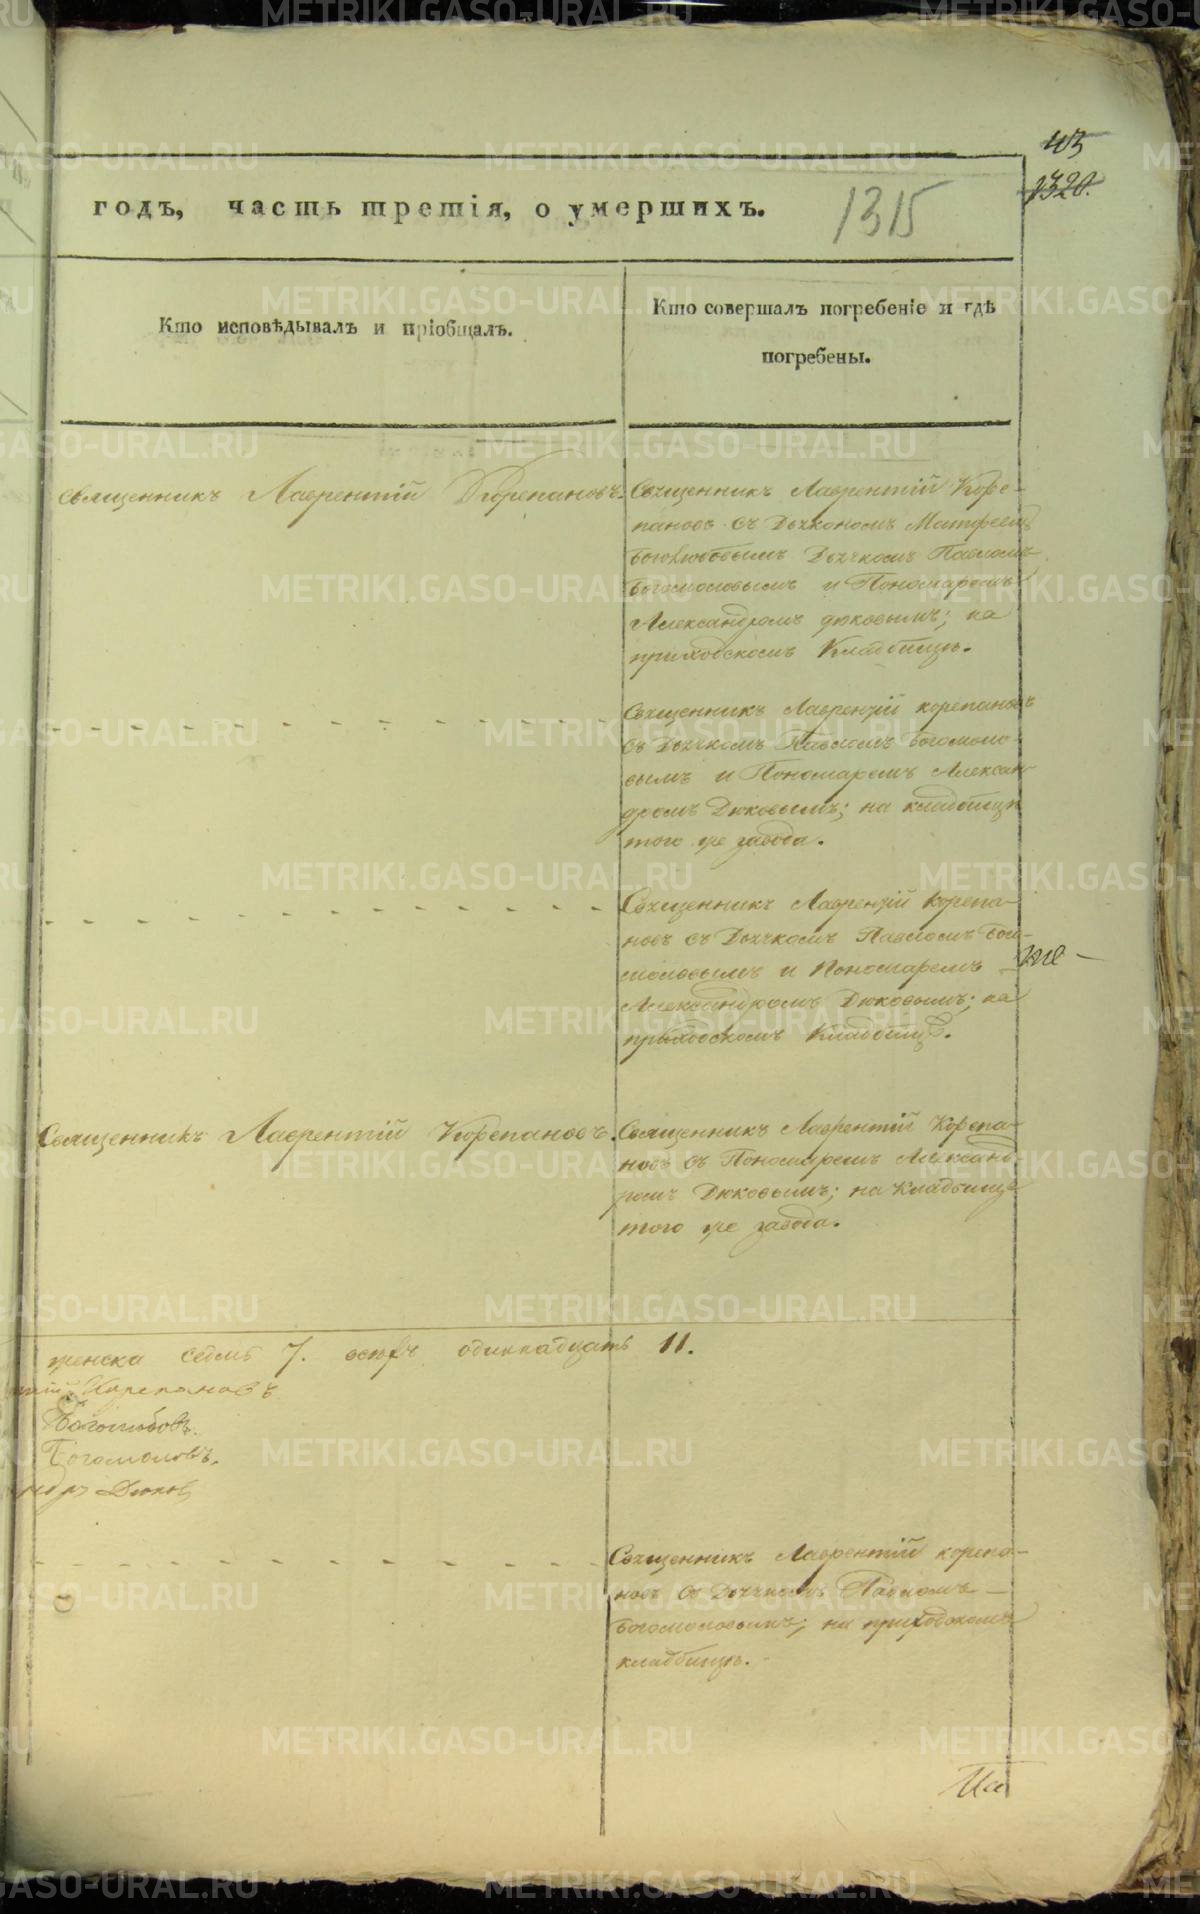 43
1320.
годъ, часть третія, о умершихъ. 1315
Кто исповѣдывалъ и пріобщалъ.
Кто совершалъ погребеніе и гдѣ
погребены.
Священникъ Лаврентій Корепановъ.
Священникъ Лаврентій Коре-
пановъ съ Дьякономъ Матфеемъ
Боголюбовымъ Дьячкомъ Павломъ
Богомоловымъ и Пономаремъ
Александромъ Дюковымъ; на
приходскомъ Кладбищѣ.
Священникъ Лаврентій Корепановъ
съ Дьячкомъ Павломъ Богомоло-
вымъ и Пономаремъ Алексан-
дромъ Дюковымъ; на кладбищѣ
того же завода.
Священникъ Лаврентій Корепа-
новъ съ Дьячкомъ Павломъ Бого-
моловымъ и Пономаремъ
Александромъ Дюковымъ; на
приходскомъ Кладбищѣ.
Священникъ Лаврентій Корепановъ.
Священникъ Лаврентій Корепа-
новъ съ Пономаремъ Александ-
ромъ Дюковымъ; на Кладбищѣ
того же завода.
женска седмь 7. всѣхъ одиннадцать 11.
тій Корепановъ
Боголюбовъ.
Богомоловъ.
ндръ Дюковъ
Священникъ Лаврентій Корепа-
новъ съ Дьячкомъ Павломъ
Богомоловымъ; на приходскомъ
кладбищѣ.
METRIKI.GASO-URAL.RU